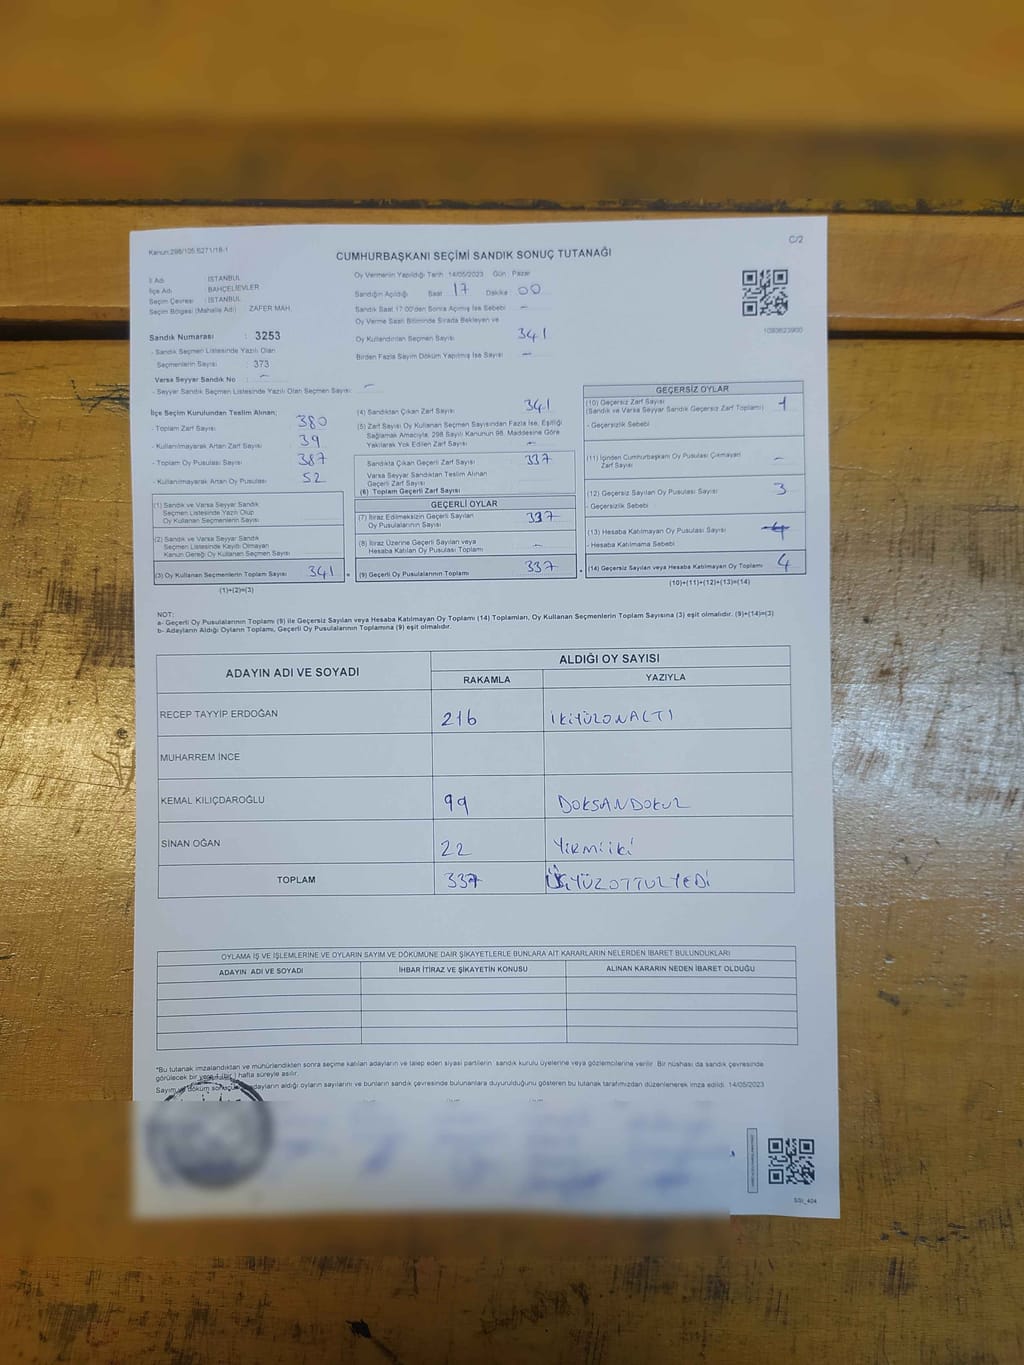 Kanun:298/105 6271/18-1
C/2
CUMHURBAŞKANI SEÇİMİ SANDIK SONUÇ TUTANAĞI
İl Adı : İSTANBUL
İlçe Adı : BAHÇELİEVLER
Seçim Çevresi : İSTANBUL
Seçim Bölgesi (Mahalle Adı) : ZAFER MAH.
Oy Vermenin Yapıldığı Tarih :14/05/2023 Gün : Pazar
Sandığın Açıldığı Saat 17 Dakika : 00
Sandık Saat 17:00'den Sonra Açılmış İse Sebebi –
Oy Verme Saati Bitiminde Sırada Bekleyen ve
Oy Kullandırılan Seçmen Sayısı 341
Birden Fazla Sayım Döküm Yapılmış İse Sayısı –
1093623900
Sandık Numarası : 3253
- Sandık Seçmen Listesinde Yazılı Olan
Seçmenlerin Sayısı : 373
Varsa Seyyar Sandık No : –
- Seyyar Sandık Seçmen Listesinde Yazılı Olan Seçmen Sayısı: –
İlçe Seçim Kurulundan Teslim Alınan;
- Toplam Zarf Sayısı : 380
- Kullanılmayarak Artan Zarf Sayısı : 39
- Toplam Oy Pusulası Sayısı : 387
- Kullanılmayarak Artan Oy Pusulası : 52
(1) Sandık ve Varsa Seyyar Sandık
Seçmen Listesinde Yazılı Olup
Oy Kullanan Seçmenlerin Sayısı
(2) Sandık ve Varsa Seyyar Sandık
Seçmen Listesinde Kayıtlı Olmayan
Kanun Gereği Oy Kullanan Seçmen Sayısı
(3) Oy Kullanan Seçmenlerin Toplam Sayısı 341
(1)+(2)=(3)
(4) Sandıktan Çıkan Zarf Sayısı 341
(5) Zarf Sayısı Oy Kullanan Seçmen Sayısından Fazla İse, Eşitliği
Sağlamak Amacıyla, 298 Sayılı Kanunun 98. Maddesine Göre
Yakılarak Yok Edilen Zarf Sayısı –
Sandıkta Çıkan Geçerli Zarf Sayısı 337
Varsa Seyyar Sandıktan Teslim Alınan
Geçerli Zarf Sayısı
(6) Toplam Geçerli Zarf Sayısı
GEÇERLİ OYLAR
(7) İtiraz Edilmeksizin Geçerli Sayılan
Oy Pusulalarının Sayısı 337
(8) İtiraz Üzerine Geçerli Sayılan veya
Hesaba Katılan Oy Pusulası Toplamı –
(9) Geçerli Oy Pusulalarının Toplamı 337
GEÇERSİZ OYLAR
(10) Geçersiz Zarf Sayısı 1
(Sandık ve Varsa Seyyar Sandık Geçersiz Zarf Toplamı)
- Geçersizlik Sebebi
(11) İçinden Cumhurbaşkanı Oy Pusulası Çıkmayan
Zarf Sayısı –
(12) Geçersiz Sayılan Oy Pusulası Sayısı 3
- Geçersizlik Sebebi
(13) Hesaba Katılmayan Oy Pusulası Sayısı
- Hesaba Katılmama Sebebi
(14) Geçersiz Sayılan veya Hesaba Katılmayan Oy Toplamı 4
(10)+(11)+(12)+(13)=(14)
NOT:
a- Geçerli Oy Pusulalarının Toplamı (9) ile Geçersiz Sayılan veya Hesaba Katılmayan Oy Toplamı (14) Toplamları, Oy Kullanan Seçmenlerin Toplam Sayısına (3) eşit olmalıdır. (9)+(14)=(3)
b- Adayların Aldığı Oyların Toplamı, Geçerli Oy Pusulalarının Toplamına (9) eşit olmalıdır.
ADAYIN ADI VE SOYADI
ALDIĞI OY SAYISI
RAKAMLA YAZIYLA
RECEP TAYYİP ERDOĞAN 216 İKİYÜZONALTI
MUHARREM İNCE
KEMAL KILIÇDAROĞLU 99 DOKSANDOKUZ
SİNAN OĞAN 22 YİRMİİKİ
TOPLAM 337 ÜÇYÜZOTTUZYEDİ
OYLAMA İŞ VE İŞLEMLERİNE VE OYLARIN SAYIM VE DÖKÜMÜNE DAİR ŞİKAYETLERLE BUNLARA AİT KARARLARIN NELERDEN İBARET BULUNDUKLARI
ADAYIN ADI VE SOYADI İHBAR İTİRAZ VE ŞİKAYETİN KONUSU ALINAN KARARIN NEDEN İBARET OLDUĞU
*Bu tutanak imzalandıktan ve mühürlendikten sonra seçime katılan adayların ve talep eden siyasi partilerin sandık kurulu üyelerine veya gözlemcilerine verilir. Bir nüshası da sandık çevresinde
görülecek bir yere 1 (bir) hafta süreyle asılır.
adayların aldığı oyların sayılarını ve bunların sandık çevresinde bulunanlara duyurulduğunu gösteren bu tutanak tarafımızdan düzenlenerek imza edildi. 14/05/2023
SSİ_404